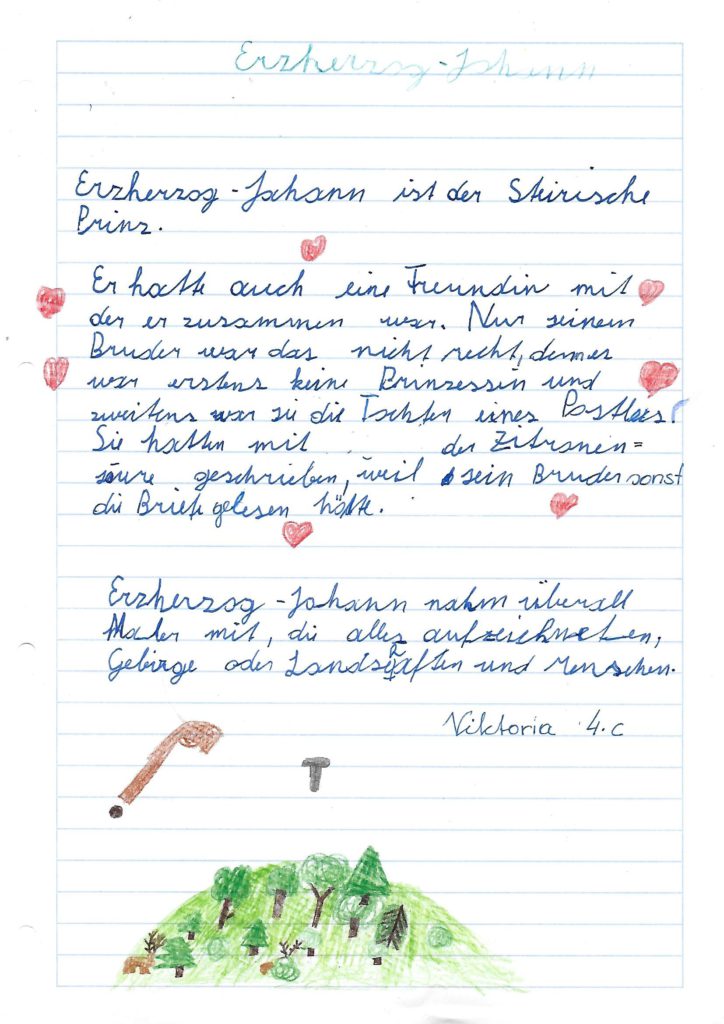 Erzherzog-Johann
Erzherzog-Johann ist der Steirische
Prinz.
Er hatte auch eine Freundin mit
der er zusammen war. Nur seinem
Bruder war das nicht recht, denn es
war erstens keine Prinzessin und
zweitens war sie die Tochter eines
Sie hatten mit der Zitronen=
säure geschrieben, weil sein Bruder sonst
die Briefe gelesen hätte.
Erzherzog-Johann nahm überall
Maler mit, die alles aufzeichneten,
Gebirge oder Landschaften und Menschen.
Viktoria 4.c